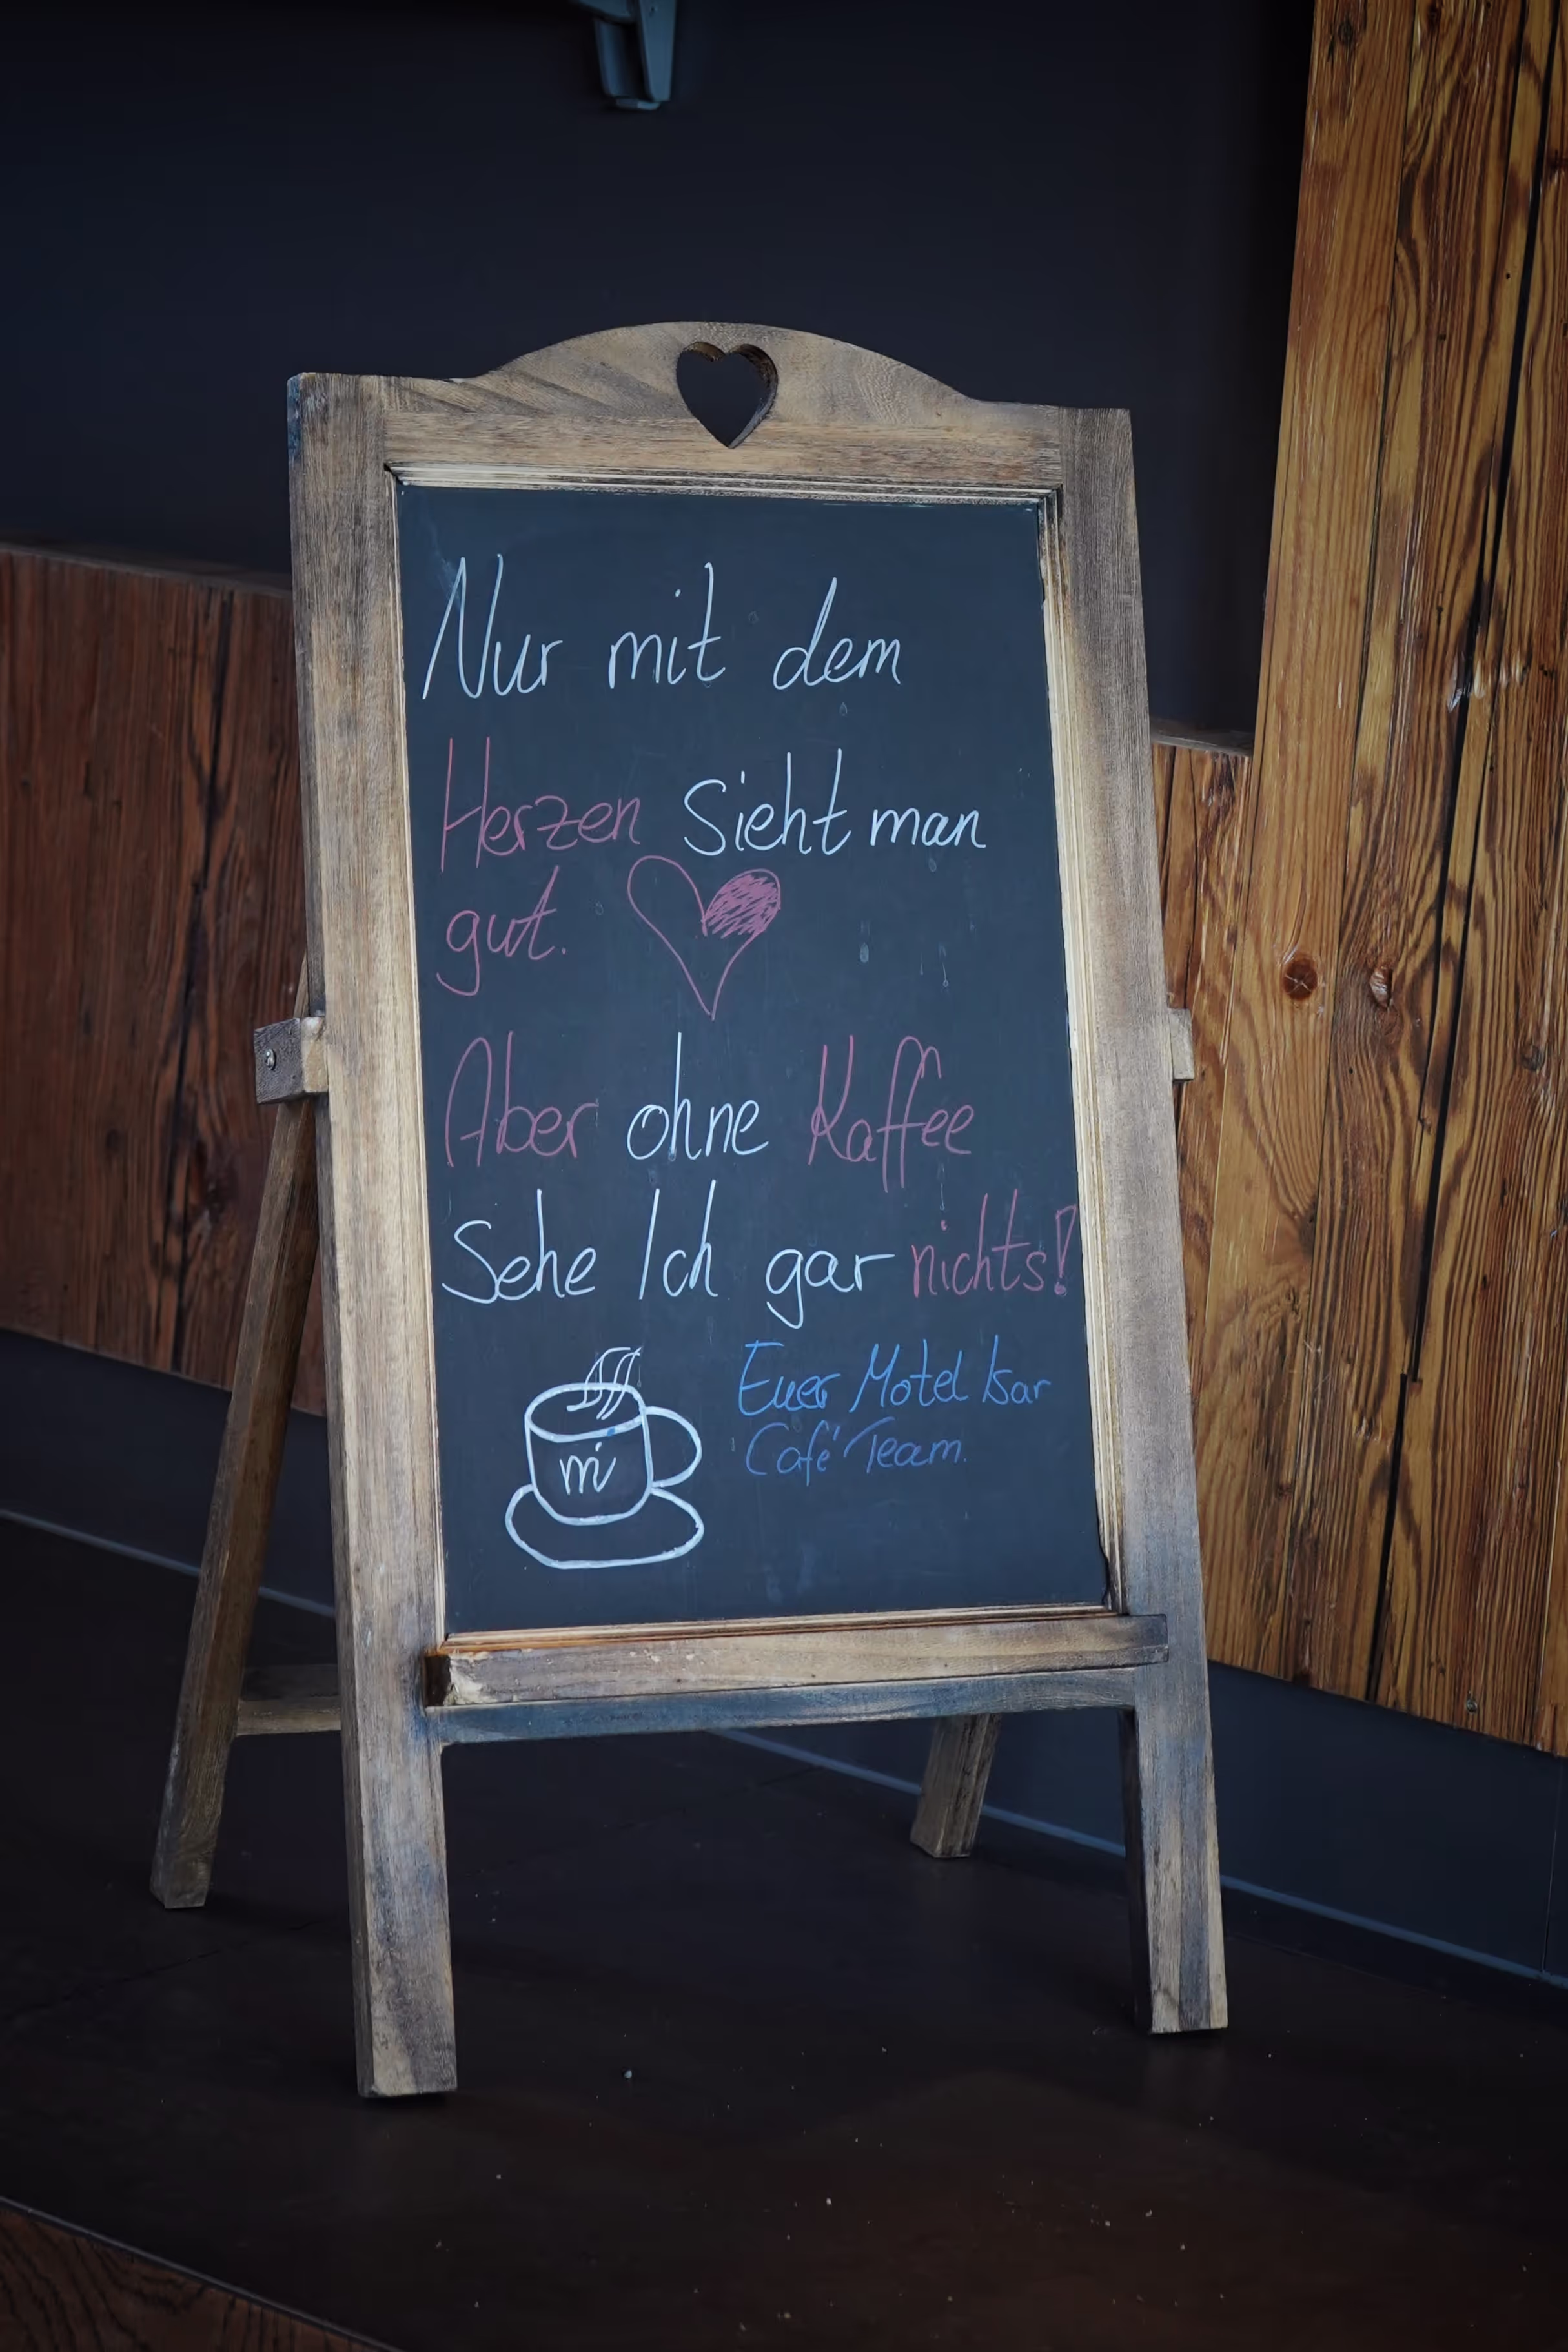 Nur mit dem
Herzen Sieht man
gut.
Aber ohne Kaffee
Sehe Ich gar nichts!
Euer Motel Isar
Café Team.
mi